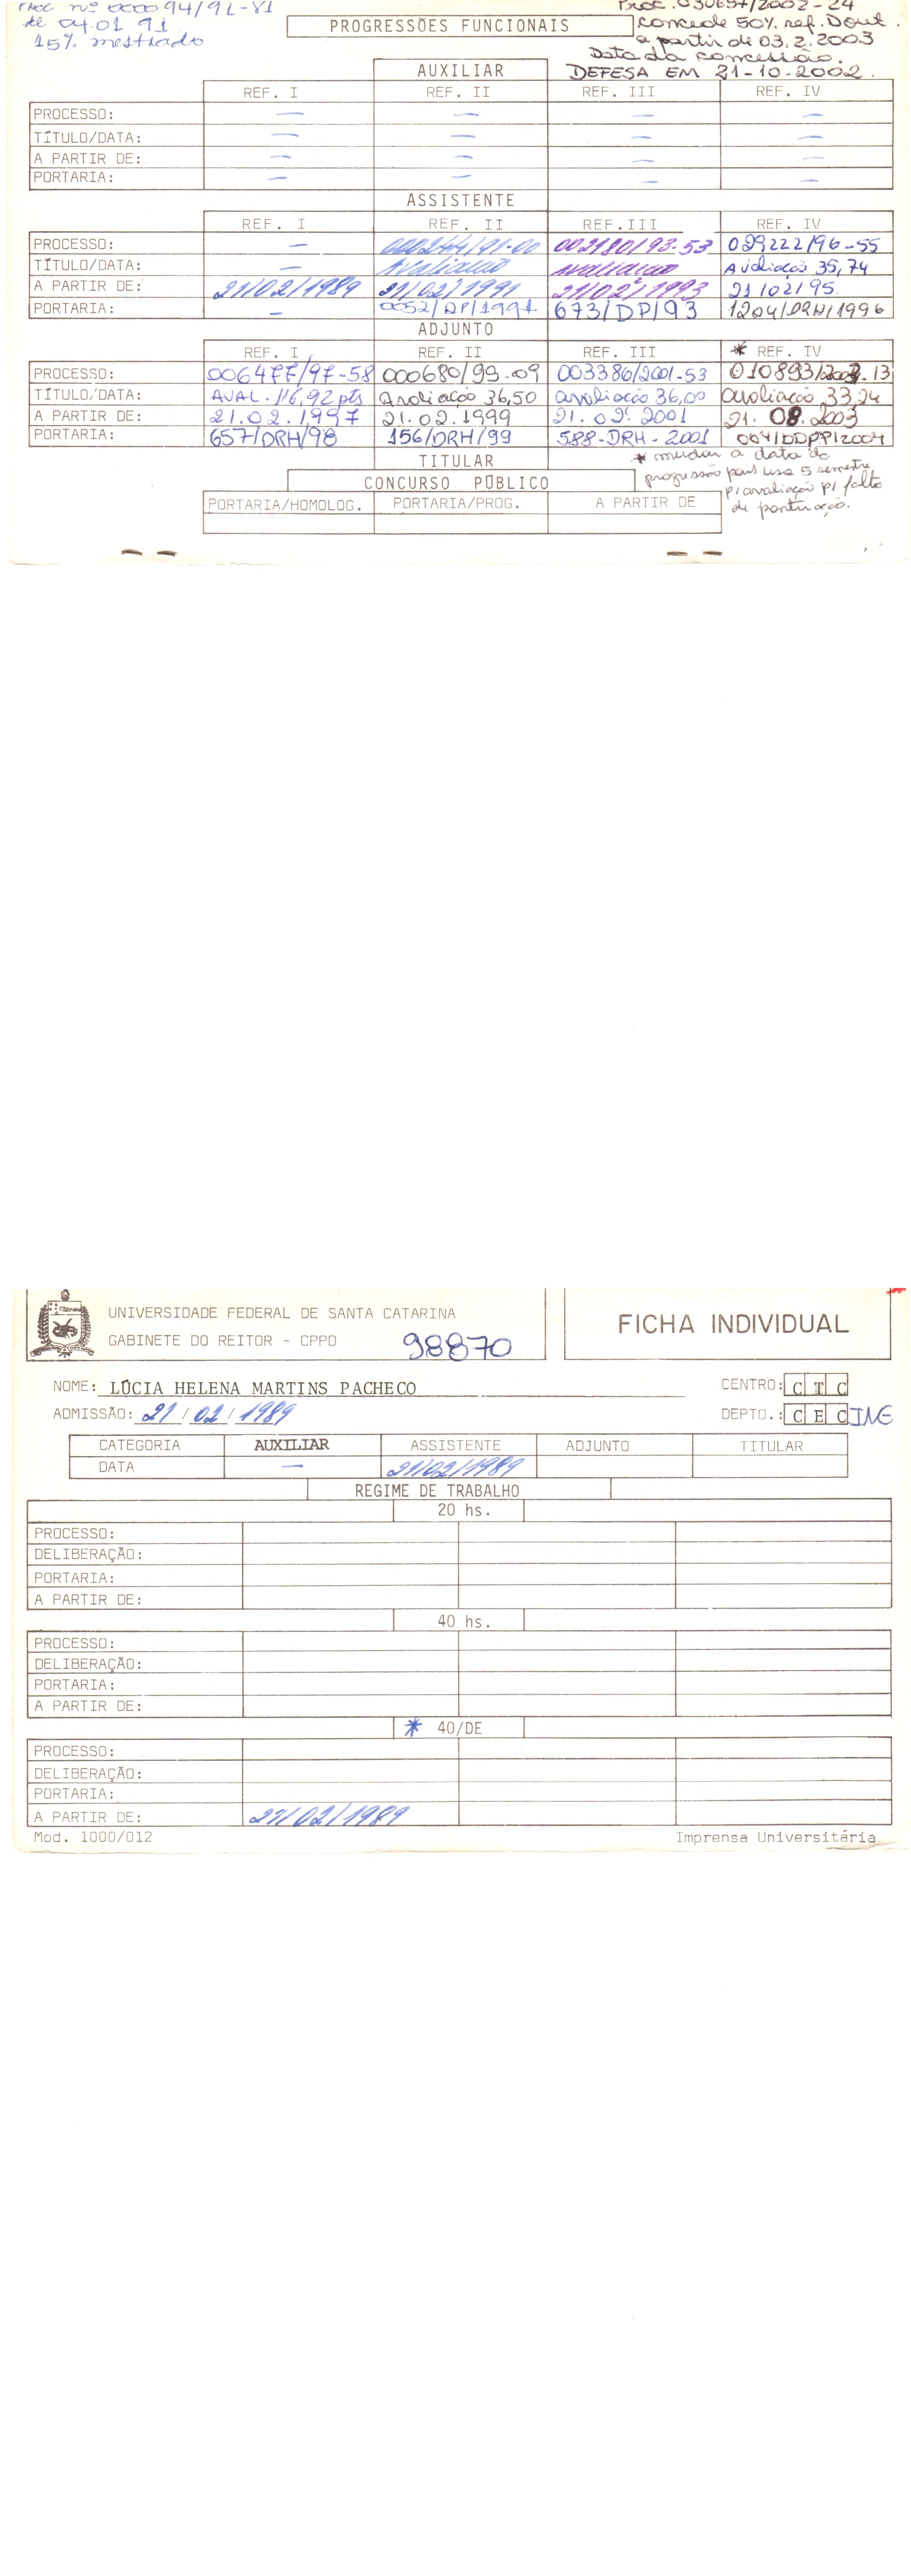 PROC nº 000094/91-81
de 04.01 91
15% mestrado
PROGRESSÕES FUNCIONAIS
Proc. 030657/2002-24
concede 50% ref. Dout.
a partir de 03.2.2003
Data da concessão.
DEFESA EM 21-10-2002.
AUXILIAR
REF. I REF. II REF. III REF. IV
PROCESSO: — — — —
TÍTULO/DATA: — — — —
A PARTIR DE: — — — —
PORTARIA: — — — —
ASSISTENTE
REF. I REF. II REF.III REF. IV
PROCESSO: — 002180/93-53 029222/96-55
TÍTULO/DATA: — Avaliação avaliação Avaliação 35,74
A PARTIR DE: 21/02/1989 21/02/1991 21/02/1993 21/02/95.
PORTARIA: — 0052/DP/1991 673/DP/93 1204/DRH/1996
ADJUNTO
REF. I REF. II REF. III * REF. IV
PROCESSO: 006477/97-58 000680/99-09 003386/2001-53 010893/2003.13
TÍTULO/DATA: AVAL. 116,92 pts Avaliação 36,50 avaliação 36,00 avaliação 33,24
A PARTIR DE: 21.02.1997 21.02.1999 21.02.2001 21.08.2003
PORTARIA: 657/DRH/98 156/DRH/99 588-DRH-2001 004/DDPP/2004
TITULAR
* mudar a data da
progressão pois usa 5 semestre
p/avaliação p/ falta
de pontuação.
CONCURSO PÚBLICO
PORTARIA/HOMOLOG. PORTARIA/PROG. A PARTIR DE
UNIVERSIDADE FEDERAL DE SANTA CATARINA
GABINETE DO REITOR - CPPD 98870
FICHA INDIVIDUAL
NOME: LÚCIA HELENA MARTINS PACHECO CENTRO: C T C
ADMISSÃO: 21/02/1989 DEPTO.: C E C INE
CATEGORIA AUXILIAR ASSISTENTE ADJUNTO TITULAR
DATA — 21/02/1989
REGIME DE TRABALHO
20 hs.
PROCESSO:
DELIBERAÇÃO:
PORTARIA:
A PARTIR DE:
40 hs.
PROCESSO:
DELIBERAÇÃO:
PORTARIA:
A PARTIR DE:
* 40/DE
PROCESSO:
DELIBERAÇÃO:
PORTARIA:
A PARTIR DE: 21/02/1989
Mod. 1000/012 Imprensa Universitária